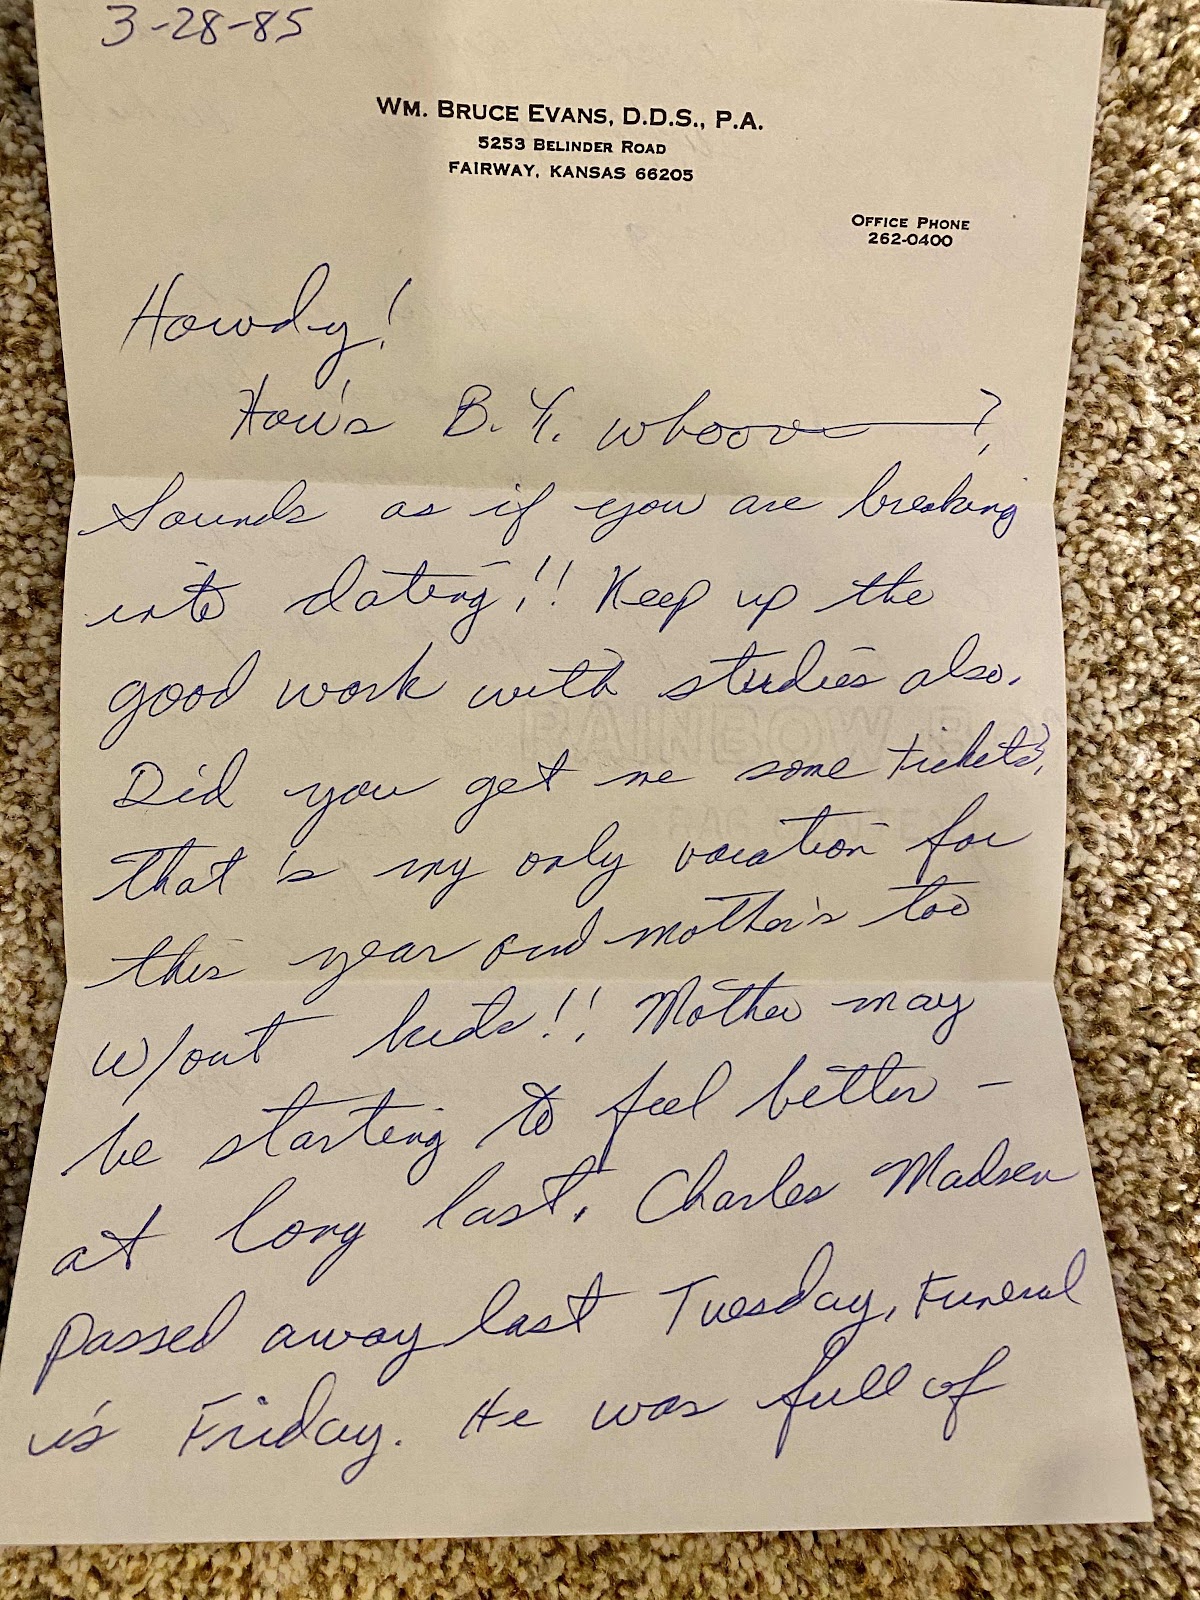 3-28-85
WM. BRUCE EVANS, D.D.S., P.A.
5253 BELINDER ROAD
FAIRWAY, KANSAS 66205
OFFICE PHONE
262-0400
Howdy!
How's B.Y. whoove?
Sounds as if you are breaking
into dating!! Keep up the
good work with studies also.
Did you get me some tickets?
that is my only vacation for
this year and mother's too
w/out kids!! Mother may
be starting to feel better –
at long last. Charles Madsen
passed away last Tuesday, Funeral
is Friday. He was full of
RAINBOW BO